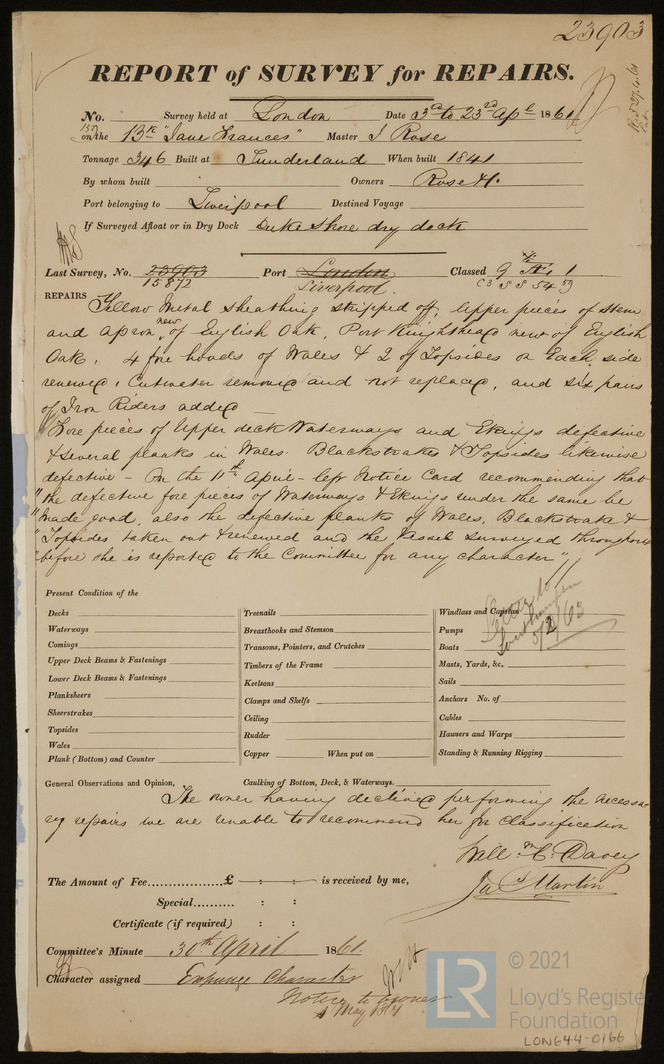 23903
REPORT of SURVEY for REPAIRS.
No. Survey held at London Date 3rd to 23rd Apl 1861
on the Bk "Jane Frances" Master J Rose
Tonnage 346 Built at Sunderland When built 1841
By whom built Owners Rose & Co.
Port belonging to Liverpool Destined Voyage
If Surveyed Afloat or in Dry Dock Duke Shore dry dock
Last Survey, No. 23903 Port London Classed 9 1
15872 Liverpool. SS 54 59
REPAIRS Yellow Metal Sheathing stripped off, Upper pieces of Stem
and apron new of English Oak, Port Knighthead new of English
Oak, 4 fore hoods of Wales & 2 of Topsides on Each side
renewed, Cutwater removed and not replaced, and six pairs
of Iron Riders added —
Fore pieces of Upper deck Waterways and Ekeings defective
& several planks in Wales. Blackstrakes & Topsides likewise
defective — On the 11th April — left Notice Card recommending that
"the defective fore pieces of Waterways & Ekeings under the same be
"Made good, also the defective planks of Wales, Blackstrake &
"Topsides taken out & renewed and the Vessel surveyed throughout
"before she is reported to the Committee for any character"
Letter to
5/2/63
Present Condition of the
Decks
Waterways
Comings
Upper Deck Beams & Fastenings
Lower Deck Beams & Fastenings
Planksheers
Sheerstrakes
Topsides
Wales
Plank (Bottom) and Counter
Treenails
Breasthooks and Stemson
Transoms, Pointers, and Crutches
Timbers of the Frame
Keelsons
Clamps and Shelfs
Ceiling
Rudder
Copper When put on
Windlass and Capstan
Pumps
Boats
Masts, Yards, &c.
Sails
Anchors No. of
Cables
Hawsers and Warps
Standing & Running Rigging
General Observations and Opinion, Caulking of Bottom, Deck, & Waterways.
The owner having declined performing the necessa-
ry repairs we are unable to recommend her for Classification
Will. m C. Davey
Jas Martin
The Amount of Fee £ : : is received by me,
Special : :
Certificate (if required) : :
Committee's Minute 30th April 1861.
Character assigned Expunge Character
Notice to owner
1 May 1861
LR
© 2021
Lloyd's Register
Foundation
LON644-0166